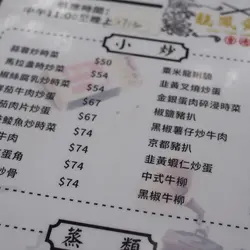 供應時間：
中午11:00至晚上
龍鳳
小炒
蒜蓉炒時菜 $50
馬拉盞時菜 $54
椒絲腐乳炒時菜 $60
蕃茄牛肉炒蛋 $67
茄肉片炒蛋 $67
鯪魚炒時菜 $74
牛肉 $74
蛋角 $74
炒骨 $74
粟米龍脷
韭黃叉燒炒蛋
金銀蛋肉碎浸時菜
椒鹽豬扒
黑椒薯仔炒牛肉
京都豬扒
韭黃蝦仁炒蛋
中式牛柳
黑椒牛柳
蒸類